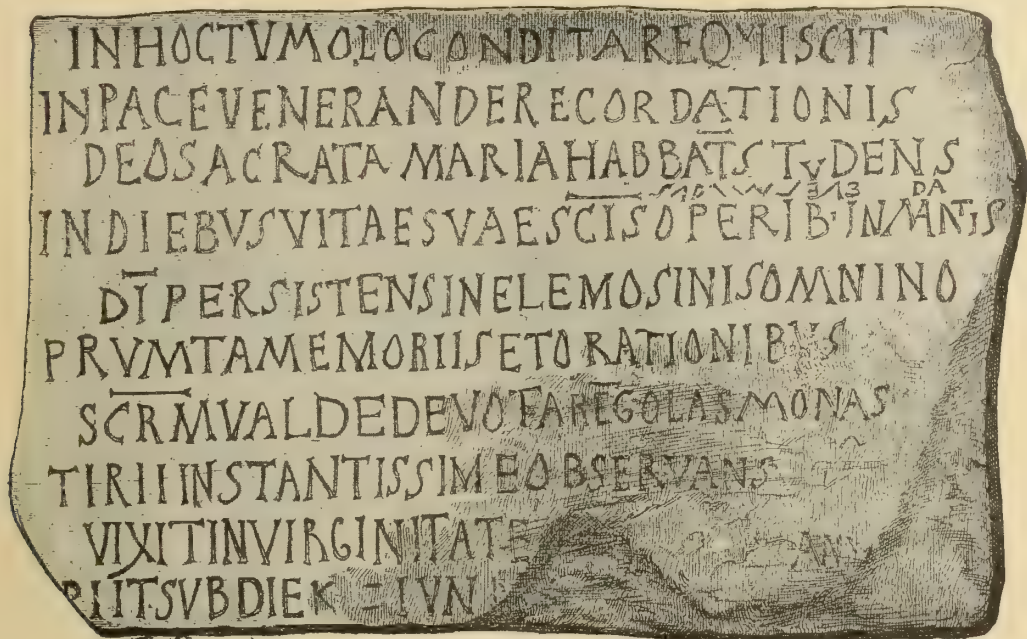 INHOCTVMOLOCONDITAREQVIISCIT
INPACEVENERANDERECORDATIONIS
DEOSACRATA MARIAHABBATS TVDENS
INDIEBVSVITAESVAESCISOPERIB·INMANDATIS
DIPERSISTENSINELEMOSINISOMNINO
PRVMTAMEMORIISETORATIONIBVS
SCRMVALDEDEVOTAREGOLASMONAS
TIRIIINSTANTISSIMEOBSERVANS
VIXITINVIRGINITATE
SVBDIEK IVN